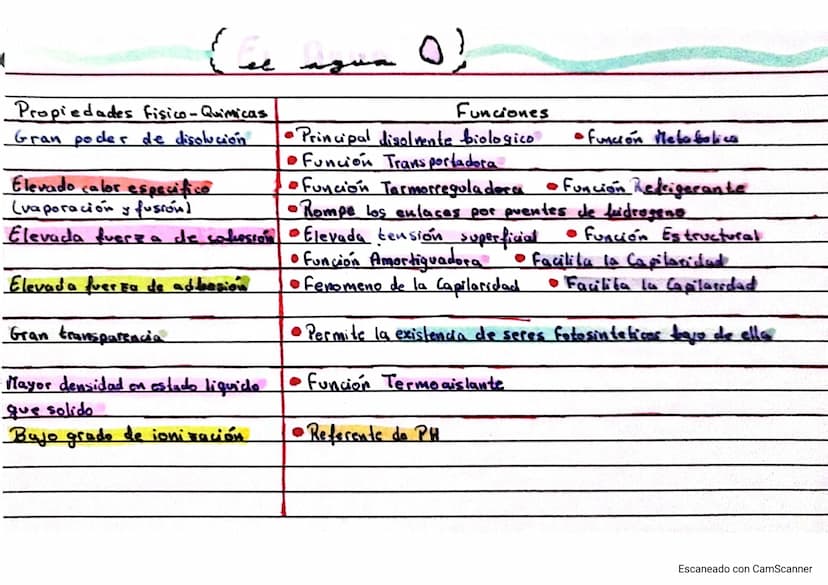 { El Agua }
Propiedades Fisico-Quimicas Funciones
Gran poder de disolución • Principal disolvente biologico • Función Metabolica
• Función Transportadora
Elevado calor especifico • Función Termorreguladora • Función Refrigerante
(vaporación y fusión) • Rompe los enlaces por puentes de hidrogeno
Elevada fuerza de cohesión • Elevada tensión superficial • Función Estructural
• Función Amortiguadora • Facilita la Capilaridad
Elevada fuerza de adhesión • Fenomeno de la Capilaridad • Facilita la Capilaridad
Gran transparencia • Permite la existencia de seres fotosinteticos bajo de ella
Mayor densidad en estado liquido • Función Termoaislante
que solido
Bajo grado de ionización • Referente de PH
Escaneado con CamScanner